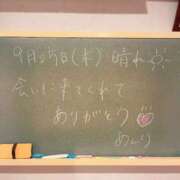 9月25日(木) 晴れ
会いに来てくれて
ありがとう
めぐり